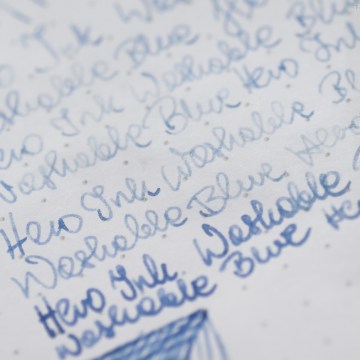 Ink Wash
Washable Blue Hero
Hero Ink Washable Blue
Washable Blue Hero Ink
Hero Ink Washable
Washable Blue Hero
Hero Ink Washable
Washable Blue Hero